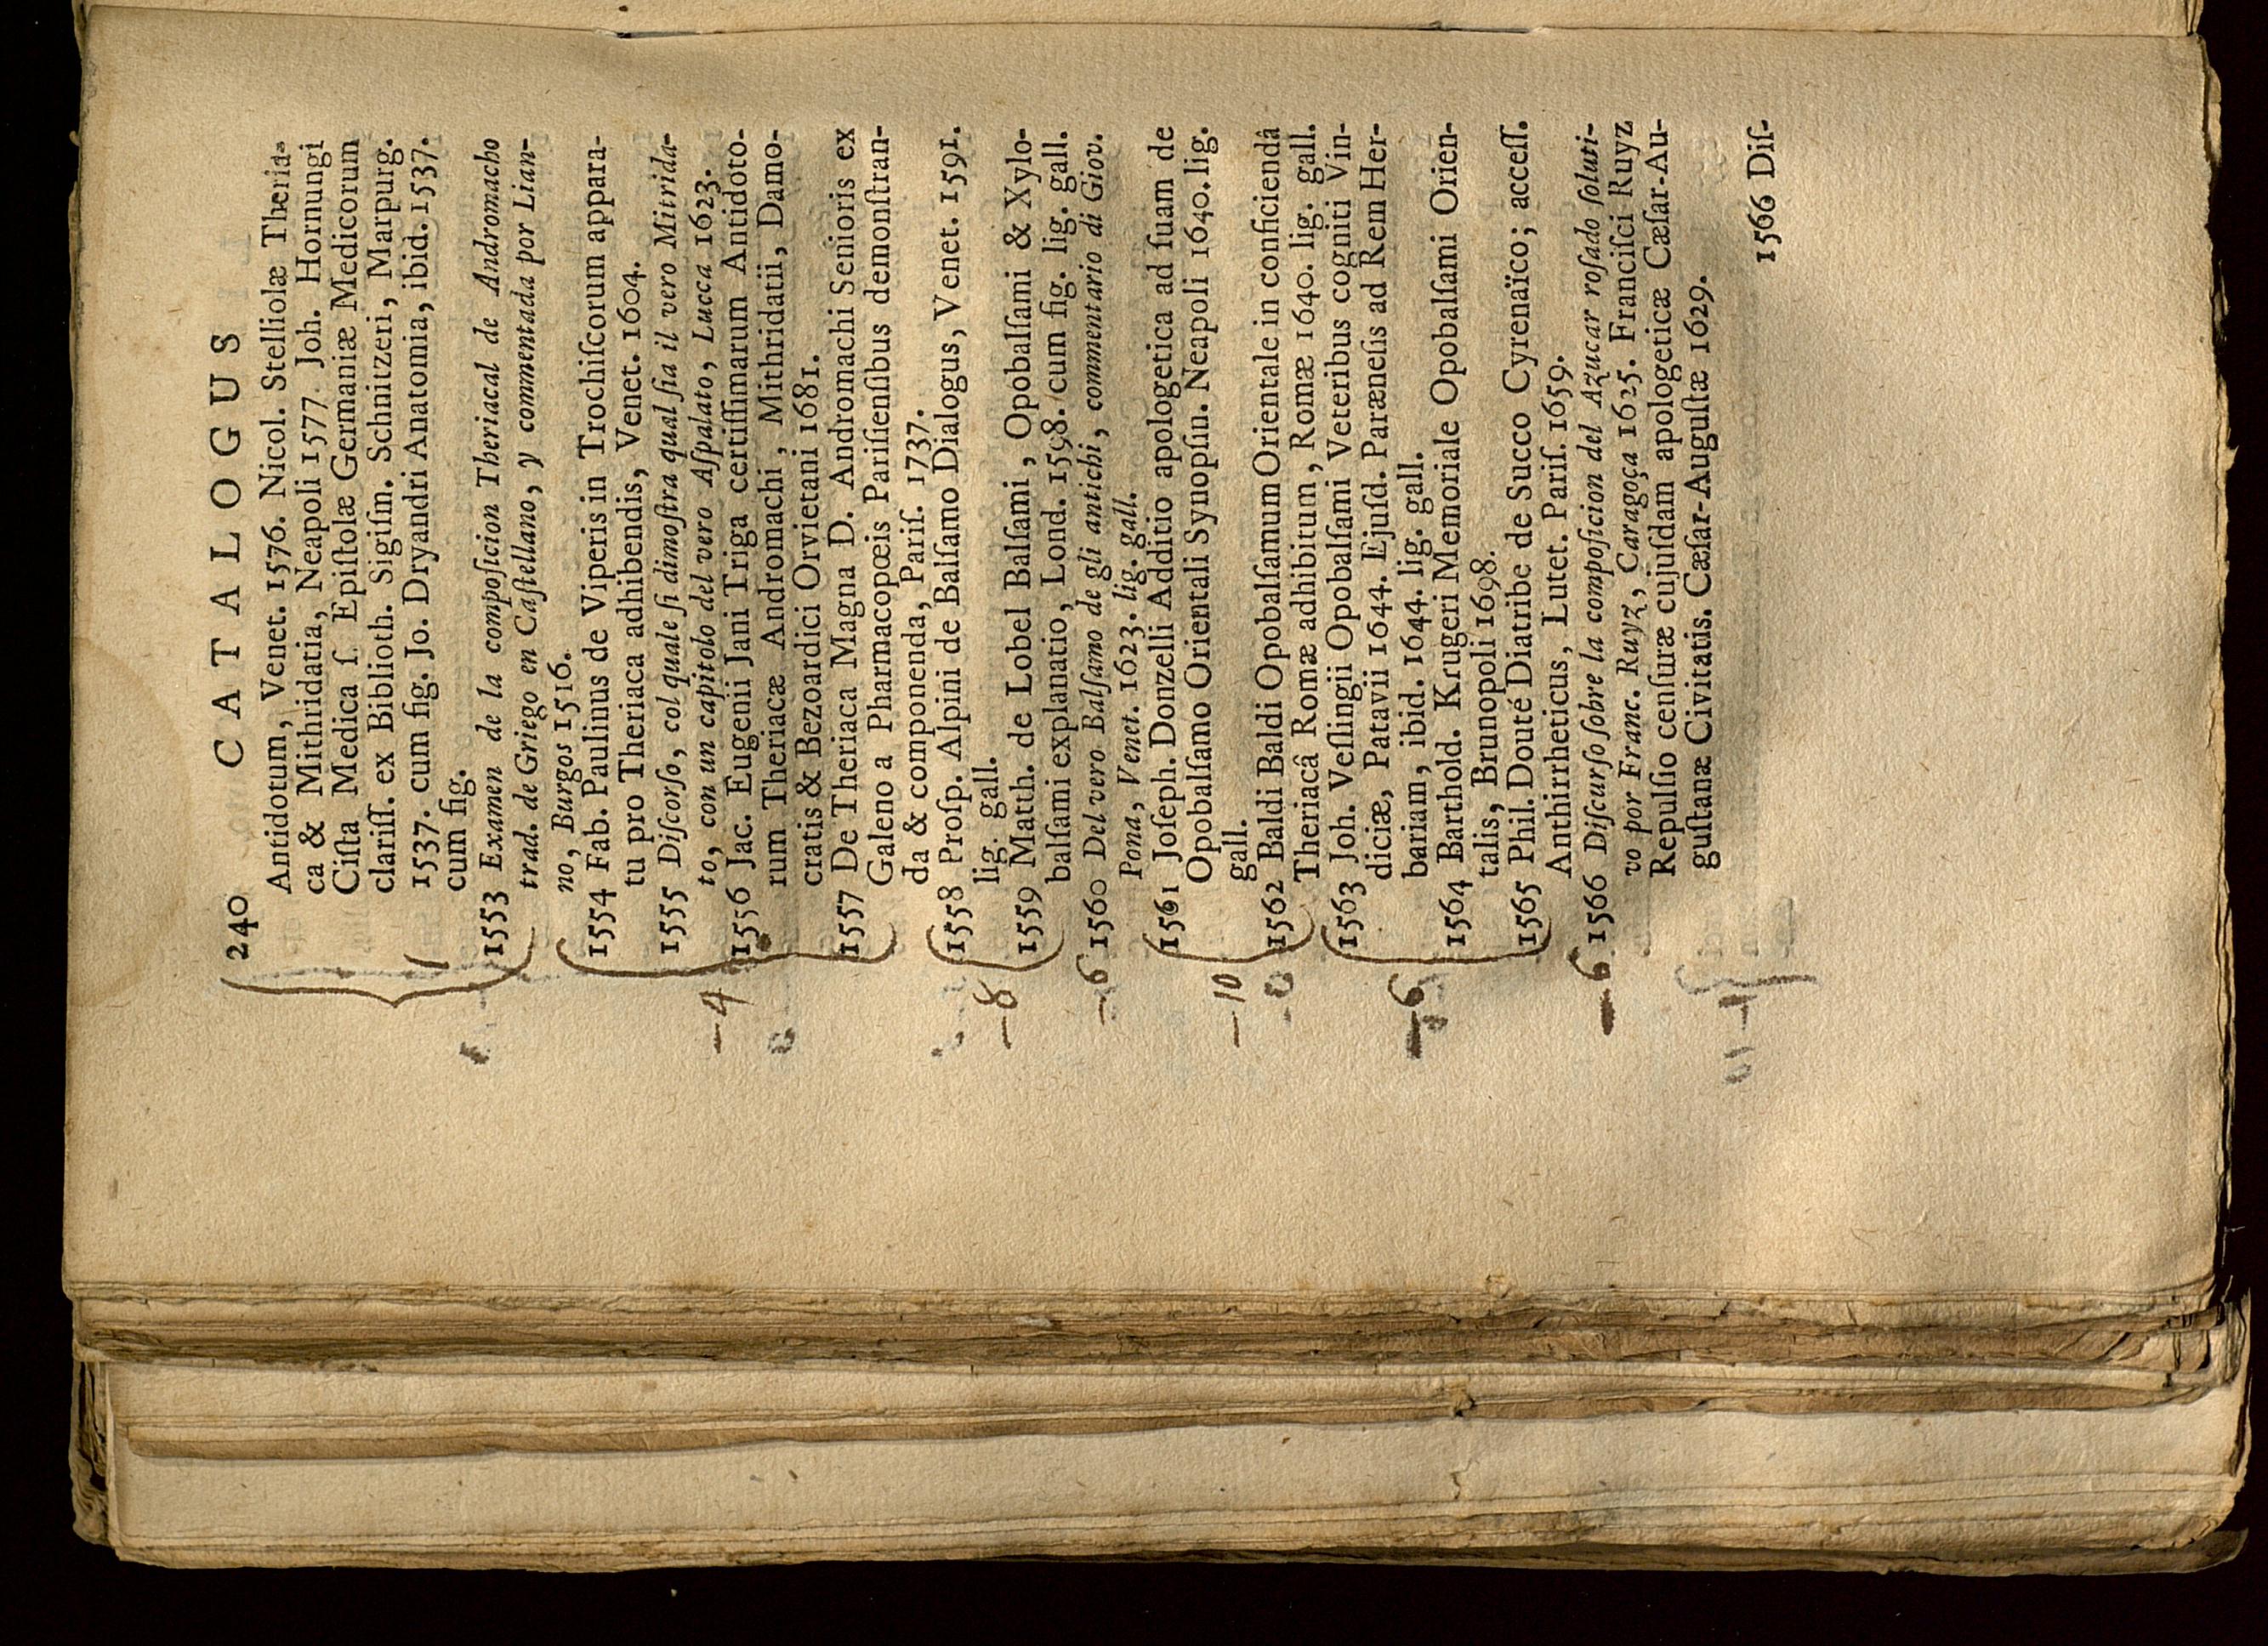 240 CATALOGUS
Antidotum, Venet. 1576. Nicol. Stelliolæ Theria-
ca & Mithridatia, Neapoli 1577 Joh. Hornungi
Ciſta Medica ſ. Epiſtolæ Germaniæ Medicorum
clariſſ. ex Biblioth. Sigiſm. Schnitzeri, Marpurg.
1537. cum fig. Jo. Dryandri Anatomia, ibid. 1537.
cum fig.
1553 Examen de la compoſicion Theriacal de Andromacho
trad. de Griego en Caſtellano, y commentada por Lian-
no, Burgos 1516.
1554 Fab. Paulinus de Viperis in Trochiſcorum appara-
tu pro Theriaca adhibendis, Venet. 1604.
1555 Diſcorſo, col quale ſi dimoſtra qual ſia il vero Mitrida-
to, con un capitolo del vero Aſpalato, Lucca 1623.
1556 Jac. Eugenii Jani Triga certiſſimarum Antidoto-
rum Theriacæ Andromachi, Mithridatii, Damo-
cratis & Bezoardici Orvietani 1681.
1557 De Theriaca Magna D. Andromachi Senioris ex
Galeno a Pharmacopœis Pariſienſibus demonſtran-
da & componenda, Pariſ. 1737.
1558 Proſp. Alpini de Balſamo Dialogus, Venet. 1591.
lig. gall.
1559 Matth. de Lobel Balſami, Opobalſami & Xylo-
balſami explanatio, Lond. 1598. cum fig. lig. gall.
1560 Del vero Balſamo de gli antichi, commentario di Giov.
Pona, Venet. 1623. lig. gall.
1561 Joſeph. Donzelli Additio apologetica ad ſuam de
Opobalſamo Orientali Synopſin. Neapoli 1640. lig.
gall.
1562 Baldi Baldi Opobalſamum Orientale in conficiendâ
Theriacâ Romæ adhibitum, Romæ 1640. lig. gall.
1563 Joh. Veſlingii Opobalſami Veteribus cogniti Vin-
diciæ, Patavii 1644. Ejuſd. Parænesis ad Rem Her-
bariam, ibid. 1644. lig. gall.
1564 Barthold. Krugeri Memoriale Opobalſami Orien-
talis, Brunopoli 1698.
1565 Phil. Douté Diatribe de Succo Cyrenaïco; acceſſ.
Anthirrheticus, Lutet. Pariſ. 1659.
1566 Diſcurſo ſobre la compoſicion del Azucar roſado ſoluti-
vo por Franc. Ruyz, Caragoça 1625. Franciſci Ruyz
Repulſio cenſuræ cujuſdam apologeticæ Cæſar-Au-
guſtanæ Civitatis. Cæſar-Auguſtæ 1629.
1566 Diſ-
1
–4
–8
–6
–10
–6
–6